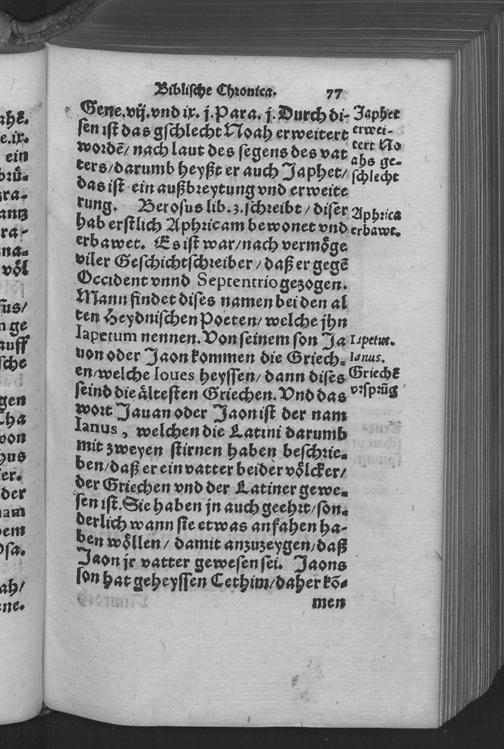 Biblische Chronica. 77
Gene.vij.vnd ix. j.Para. j. Durch di-
sen ist das gschlecht Noah erweitert
wordē/ nach laut des segens des vat
ters/darumb heyßt er auch Japhet/
das ist ein außbreytung vnd erweite
rung. Berosus lib.3.schreibt/diser
hab erstlich Aphricam bewonet vnd
erbawet. Es ist war/nach vermöge
viler Geschichtschreiber/daß er gegē
Occident vnnd Septentrio gezogen.
Mann findet dises namen bei den al
ten Heydnischen Poeten/welche jhn
Iapetum nennen. Von seinem son Ja
uon oder Jaon kommen die Griech-
en/welche Ioues heyssen/dann dises
seind die ältesten Griechen. Vnd das
wort Jauan oder Jaon ist der nam
Ianus, welchen die Latini darumb
mit zweyen stirnen haben beschrie-
ben/daß er ein vatter beider völcker/
der Griechen vnd der Latiner gewe-
sen ist. Sie haben jn auch geehrt/son-
derlich wann sie etwas anfahen ha-
ben wöllen/damit anzuzeygen/daß
Jaon jr vatter gewesen sei. Jaons
son hat geheyssen Cethim/daher kō-
men
Japhet
erwei-
tert No
ahs ge-
schlecht
Aphrica
erbawt.
Iapetus.
Ianus.
Griechē
vrsprūg
ahē.
e.ix.
ein
brü-
ra-
antz
ra-
na-
völ
sus/
n ge
uff
sche
gen
Tha
von
hus
er.
der
nam
dem
Osa.
ah/
ene.